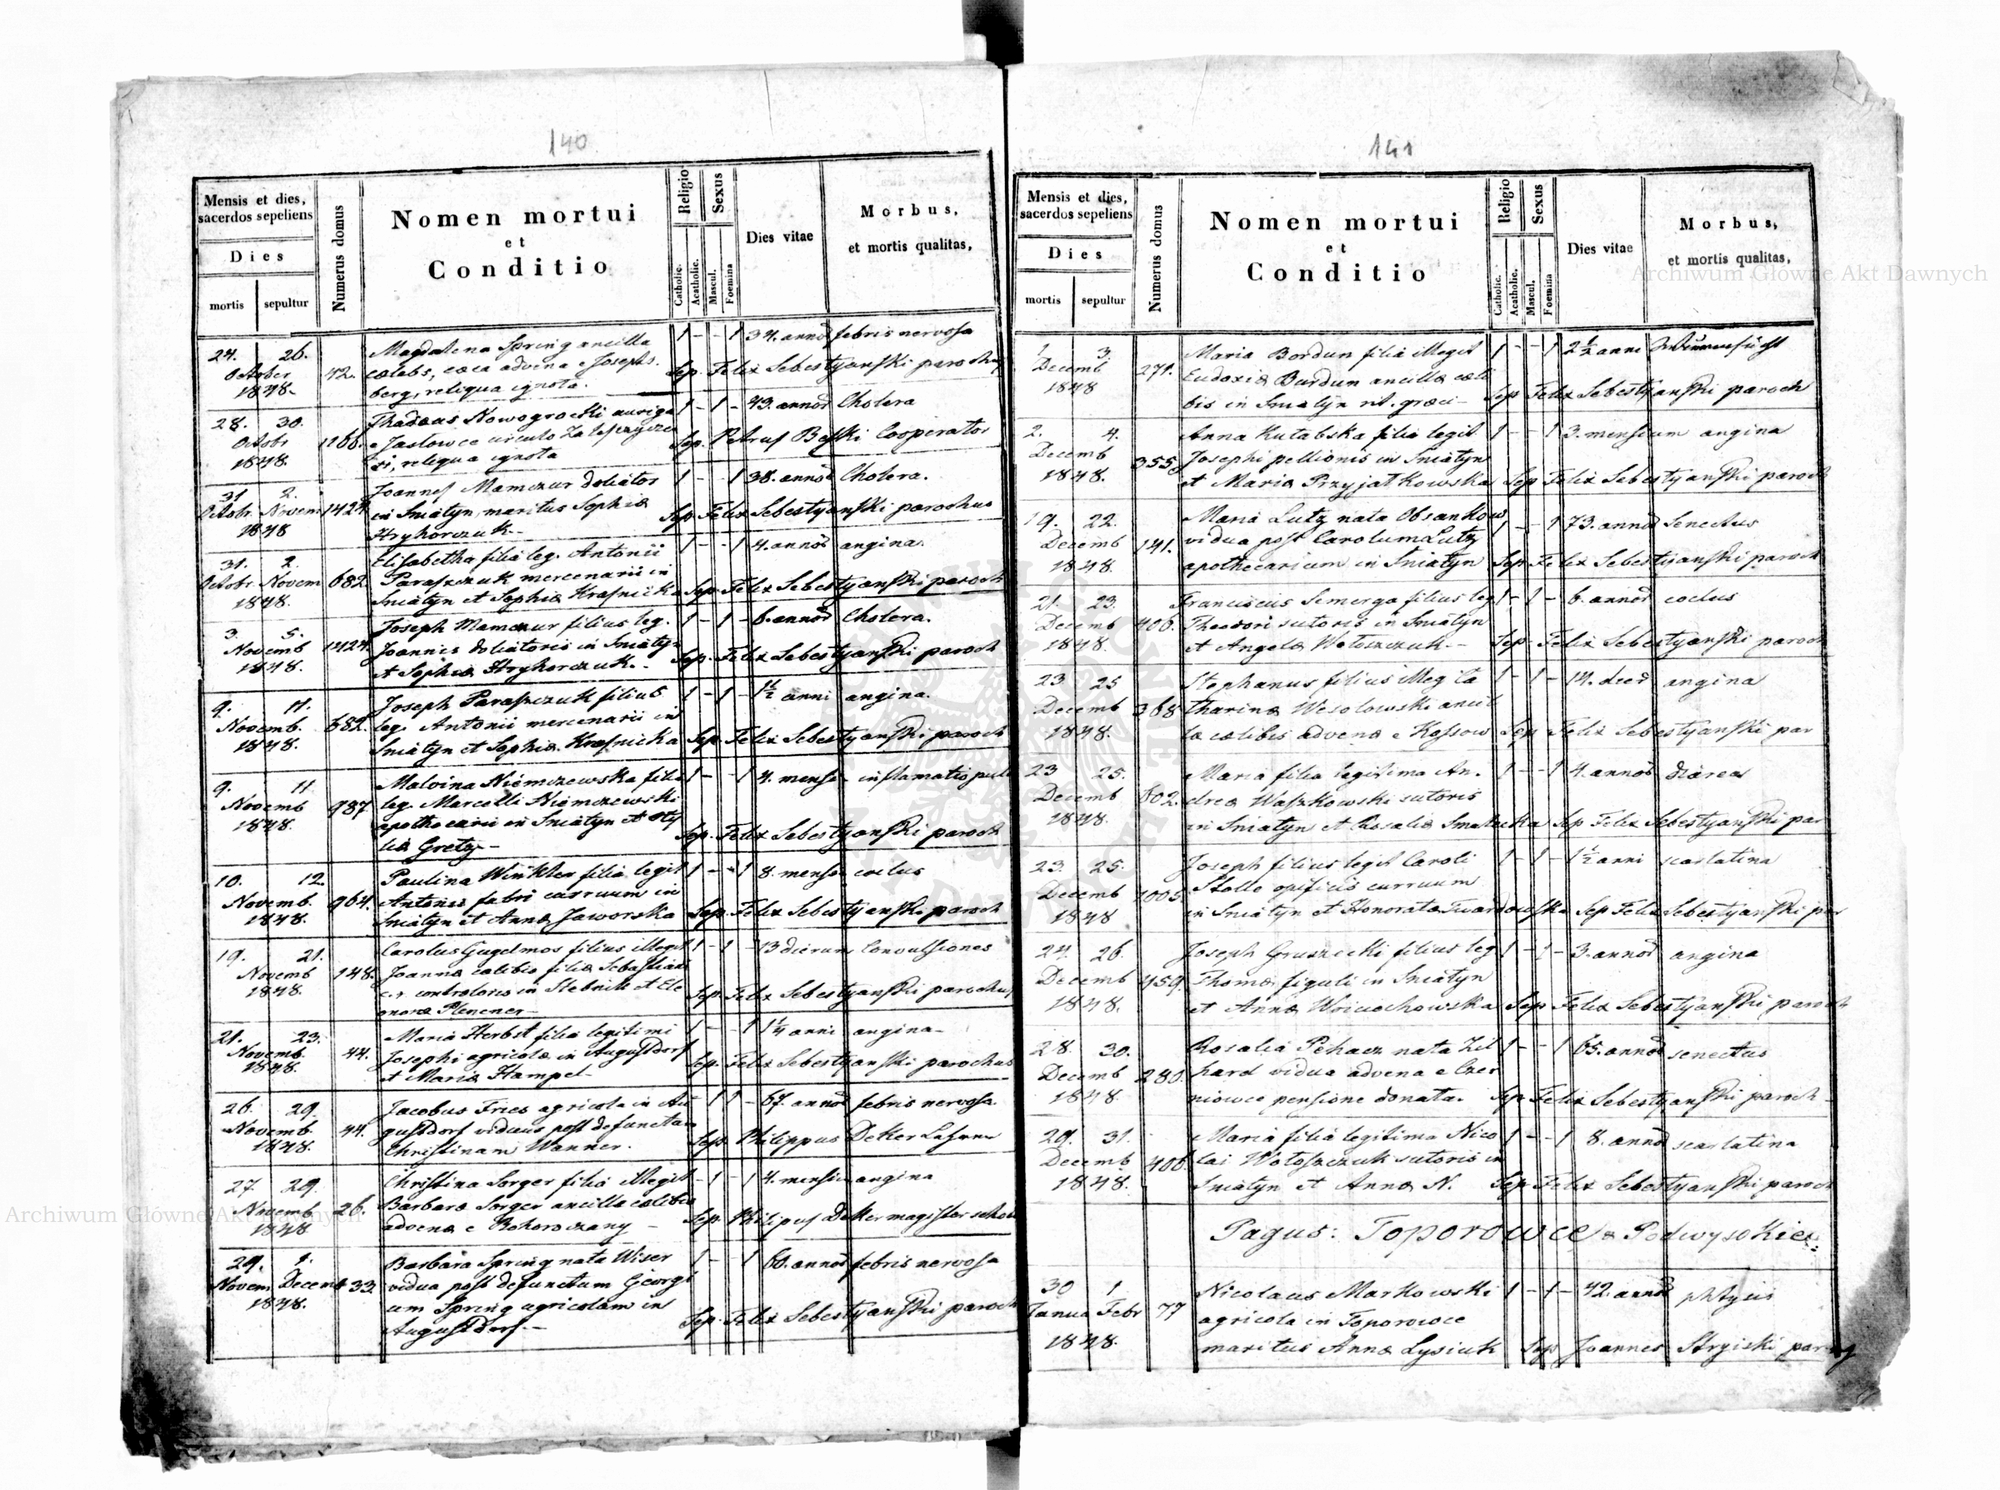 140
Mensis et dies, sacerdos sepeliens
Dies
mortis sepultur
Numerus domus
Nomen mortui
et
Conditio
Religio
Catholic.
Acatholic.
Sexus
Mascul.
Foemina
Dies vitae
Morbus,
et mortis qualitas,
24. 26. Magdalena Spring ancilla 1 - - 1 34. annor febris nervosa
October 72. cœlebs, cœca advena e Josephs
1848. berg, reliqua ignota. Sep. Felix Sebestyanski parochus
28. 30. Thadæus Nowogrocki auriga 1 - 1 - 43. annor Cholera
Octobr 1268. e Jaslowce circulo
1848. reliqua ignota Sep. Petrus Beski Cooperator
31 2. Joannes Mamczur doliator 1 - - 1 38. annor Cholera.
Octobr. Novem 1424. in Sniatyn maritus Sophiæ
1848 Hryhorczuk Sep. Felix Sebestyanski parochus
31. 2. Elisabetha filia leg. Antonii 1 - - 1 4. annor angina.
Octobr Novem 682. Paraszczuk mercenarii in
1848. Sniatyn et Sophiæ Krasnicka Sep. Felix Sebestyanski paroch
3. 5. Joseph Mamczur filius leg. 1 - 1 - 6. annor Cholera.
Novemb 1424. Joannis doliatoris in Sniatyn
1848. et Sophiæ Hryhorczuk. Sep. Felix Sebestyanski paroch
9. 11. Joseph Paraszczuk filius 1 - 1 - 1½ anni angina.
Novemb. 682. leg. Antonii mercenarii in
1848. Sniatyn et Sophiæ Krasnicka Sep. Felix Sebestyanski paroch
9. 11 Malvina Niemczewska filia 1 - - 1 4. mens inflamatio pul
Novemb 987 leg. Marcelli Niemczewski
1848. apothecarii in Sniatyn et Oty
liæ Gretz Sep. Felix Sebestyanski paroch
10. 12. Paulina Winkler filia legit 1 - - 1 8. mens
Novemb. 964. Antonii fabri curruum in
1848. Sniatyn et Annæ Jaworska Sep. Felix Sebestyanski paroch
19. 21. Carolus Gugelmos filius illegit 1 - 1 - 13 dierum Convulsiones
Novemb 148. Joannæ cœlibis filiæ Sebastiani
1848. controloris in et Ele
onoræ Plencner Sep. Felix Sebestyanski parochus
21. 23. Maria Herbst filia legitimi 1 - - 1 1¼ anni angina
Novemb. 44. Josephi agricolæ in Augustdorf
1848. et Mariæ Hampel Sep. Felix Sebestyanski parochus
26. 29. Jacobus Fries agricola in Au - 1 1 - 67. annor febris nervosa
Novemb. 44. gustdorf viduus post defunctam
1848. Christinam Wanner. Sep. Philippus Deker
27. 29. Christina Sorger filia illegit - 1 - 1 4. mensiu angina
Novemb 26. Barbaræ Sorger ancillæ cœlibis
1848 advenæ e Bohorodczany Sep. Philipus Deker magister
29. 1. Barbara Spring nata Wiser 1 - - 1 60. annor febris nervosa
Novem Decemb 33. vidua post defunctum Georgi
1848. um Spring agricolam in
Augustdorf. Sep. Felix Sebestyanski paroch
141
Mensis et dies, sacerdos sepeliens
Dies
mortis sepultur
Numerus domus
Nomen mortui
et
Conditio
Religio
Catholic.
Acatholic.
Sexus
Mascul.
Foemina
Dies vitae
Morbus,
et mortis qualitas,
1. 3. Maria Bordun filia illegit 1 - - 1 2½ anni
Decemb 271. Eudoxiæ Burdun ancillæ cæli
1848 bis in Sniatyn rit. græci Sep Felix Sebestyanski paroch
2. 4. Anna Kutabska filia legit 1 - - 1 3. mensium angina
Decemb 355. Josephi pellionis in Sniatyn
1848. et Mariæ Przyjatkowska Sep Felix Sebestyanski paroch
19. 22. Maria Lutz nata Obsankow 1 - - 1 73. annor Senectus
Decemb 141. vidua post Carolum Lutz
1848. apothecarium in Sniatyn Sep Felix Sebestyanski paroch
21. 23. Franciscus Semerga filius leg 1 - 1 - 6. annor
Decemb 406. Theodori sutoris in Sniatyn
1848. et Angelæ Wołoszczuk. Sep Felix Sebestyanski paroch
23 25 Stephanus filius illeg Ca 1 - 1 - 14. dier angina
Decemb 368 tharinæ Wesolowski ancil
1848. læ cælibis advenæ e Kossow Sep Felix Sebestyanski par
23 25. Maria filia legitima An. 1 - - 1 4. annor diarea
Decemb 802. dreæ Waszkowski sutoris
1848. in Sniatyn et Rosaliæ Sep Felix Sebestyanski par
23 25. Joseph filius legit Caroli 1 - 1 - 1½ anni scarlatina
Decemb 1005. Stolle opificis curruum
1848 in Sniatyn et Honoratæ Twardowska Sep Felix Sebestyanski par
24. 26. Joseph Gruszecki filius leg 1 - 1 - 3. annor angina
Decemb 459. Thomæ figuli in Sniatyn
1848. et Annæ Woiciechowska Sep Felix Sebestyanski paroch
28. 30. Rosalia Pehacz nata Zil 1 - - 1 65. annor senectus
Decemb 280. hard vidua advena e Czer
1848 niowce pensione donata. Sep Felix Sebestyanski paroch
29. 31. Maria filia legitima Nico 1 - - 1 8. annor scarlatina
Decemb 406. lai Wołoszczuk sutoris in
1848. Sniatyn et Annæ N. Sep Felix Sebestyanski paroch
Pagus: Toporowce & Podwysokie.
30 1 Nicolaus Markowski 1 - 1 - 42. annor phtysis
Janua Febr 77 agricola in Toporowce
1848. maritus Annæ Lysiuk Sep Joannes par
Archiwum Główne Akt Dawnych
Archiwum Główne Akt Dawnych